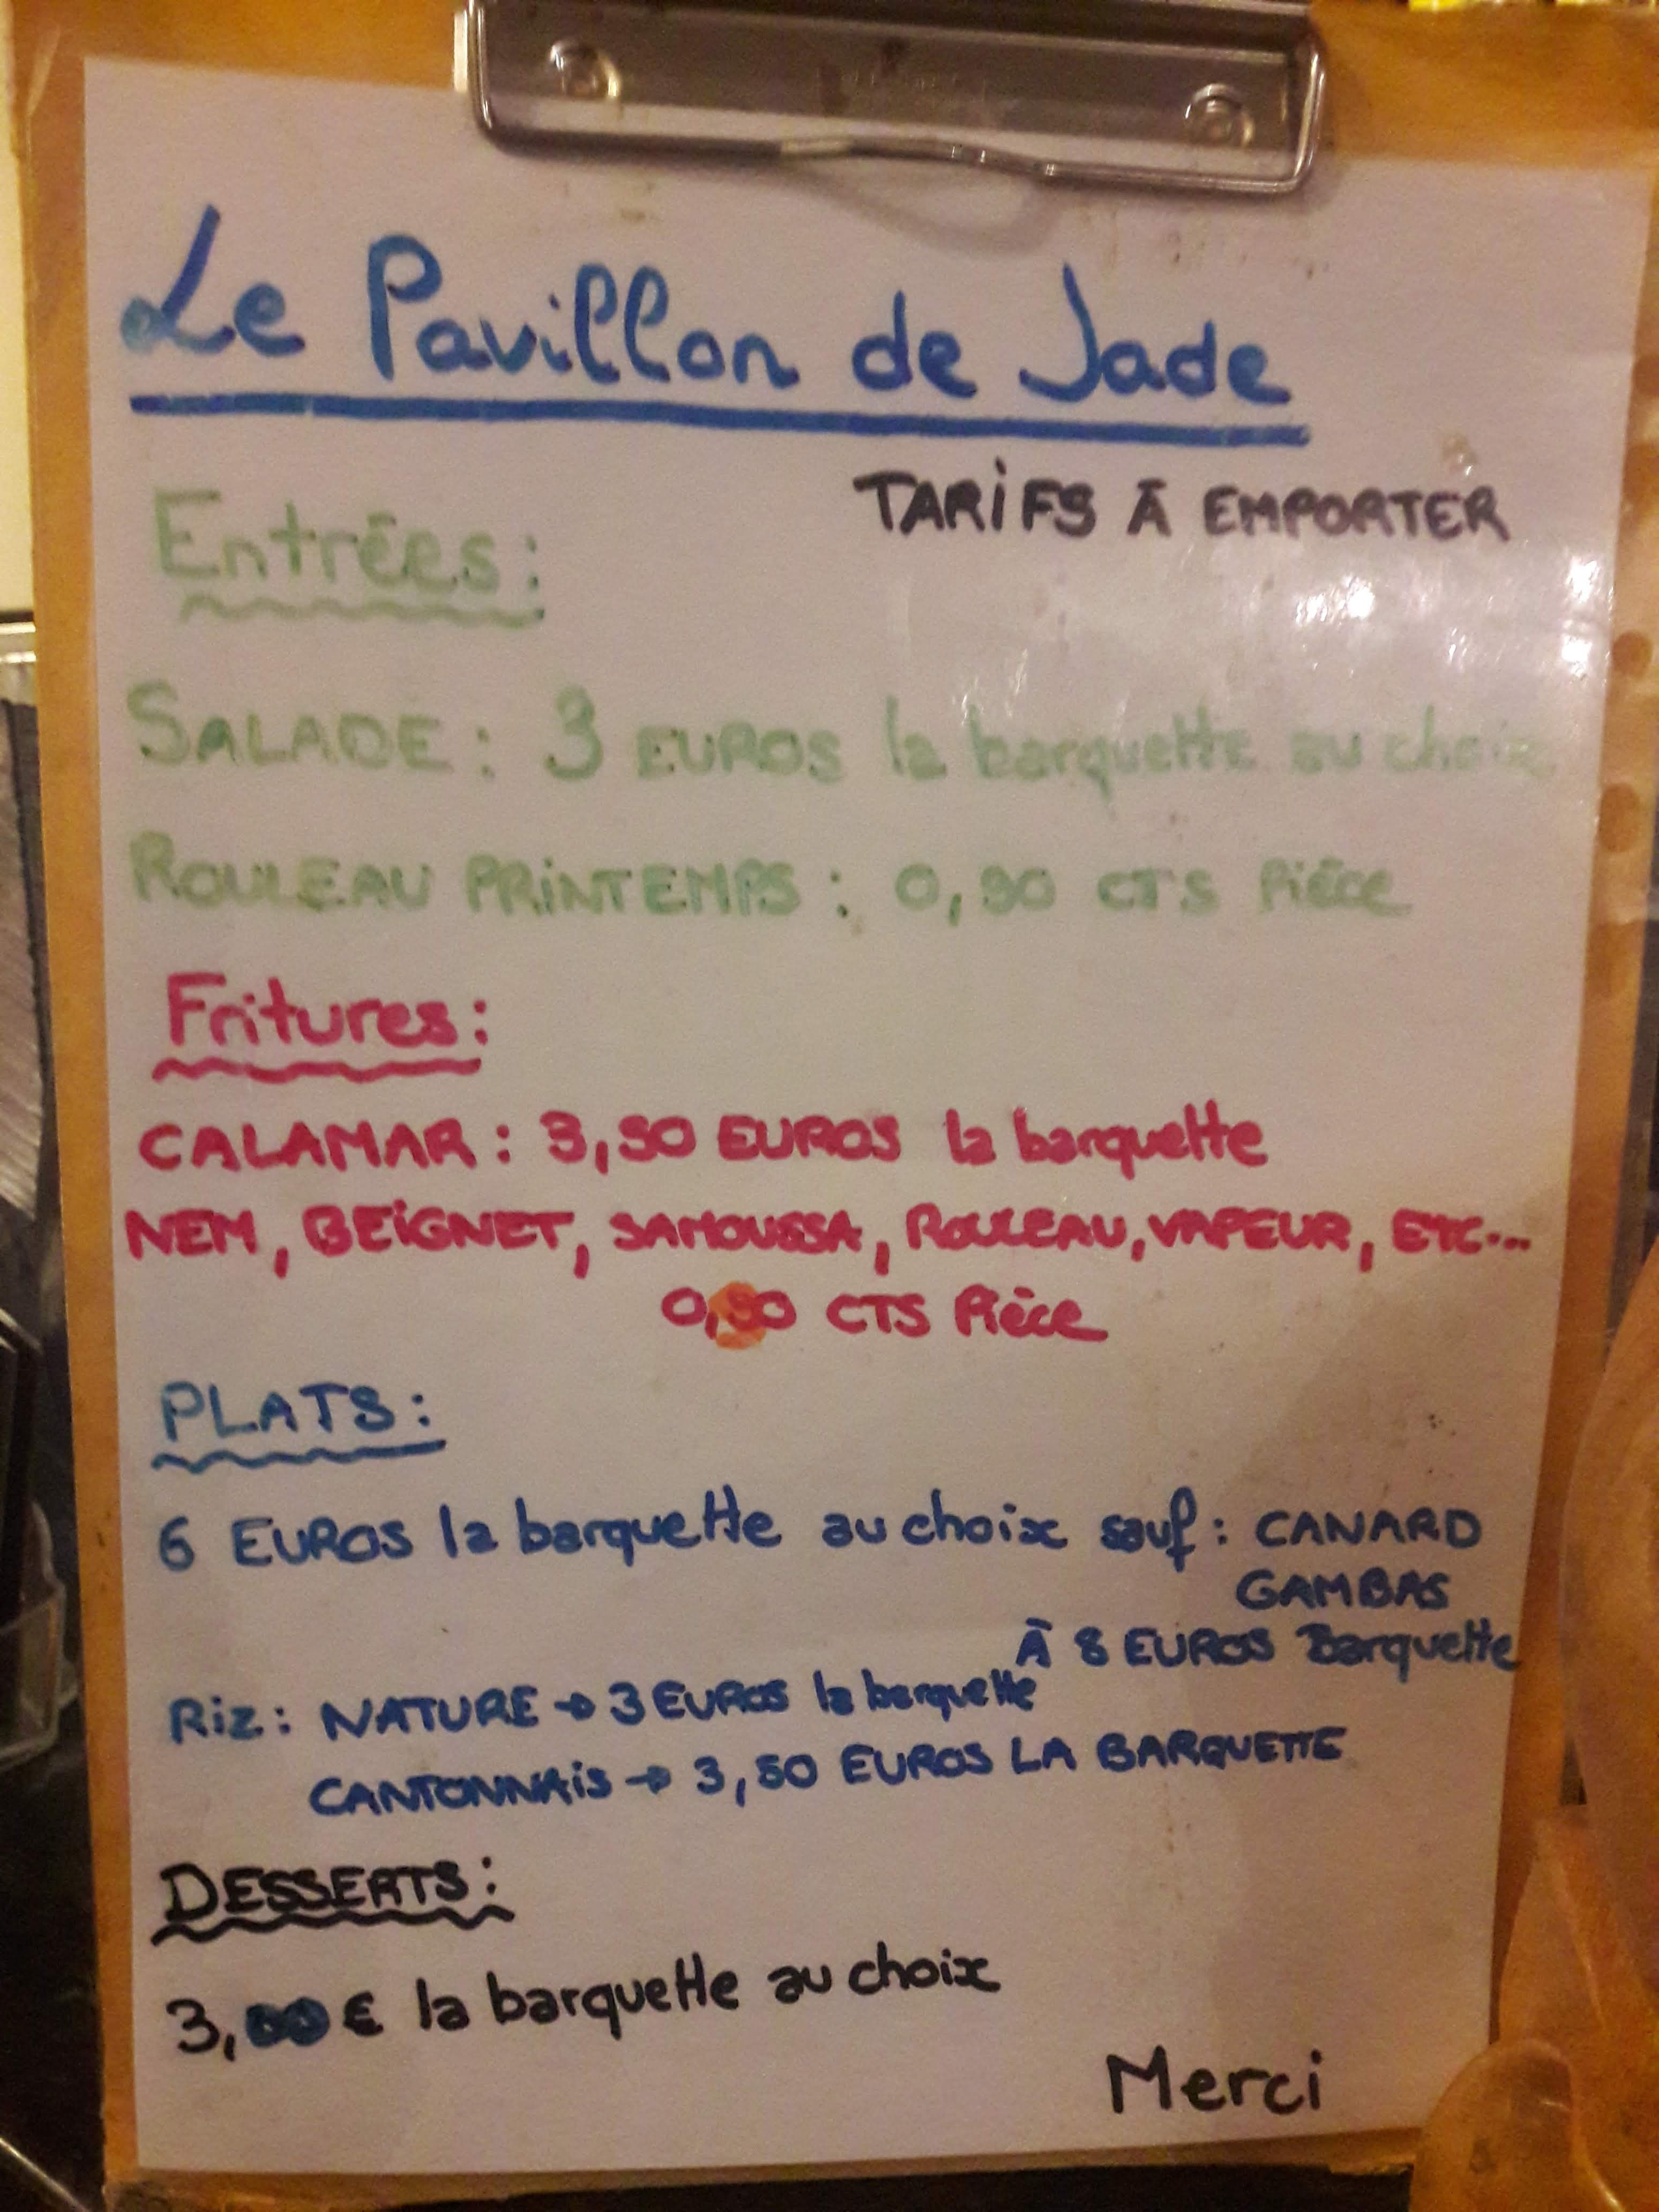 Le Pavillon de Jade
TARIFS À EMPORTER
Entrées:
SALADE : 3 EUROS la barquette au choix
ROULEAU PRINTEMPS : 0,90 CTS Pièce
Fritures:
CALAMAR : 3,50 EUROS la barquette
NEM, BEIGNET, SAMOUSSA, ROULEAU, VAPEUR, ETC...
0,90 CTS Pièce
PLATS:
6 EUROS la barquette au choix sauf : CANARD
GAMBAS
À 8 EUROS Barquette
Riz : NATURE → 3 EUROS la barquette
CANTONNAIS → 3,50 EUROS LA BARQUETTE
DESSERTS:
3,00 € la barquette au choix
Merci